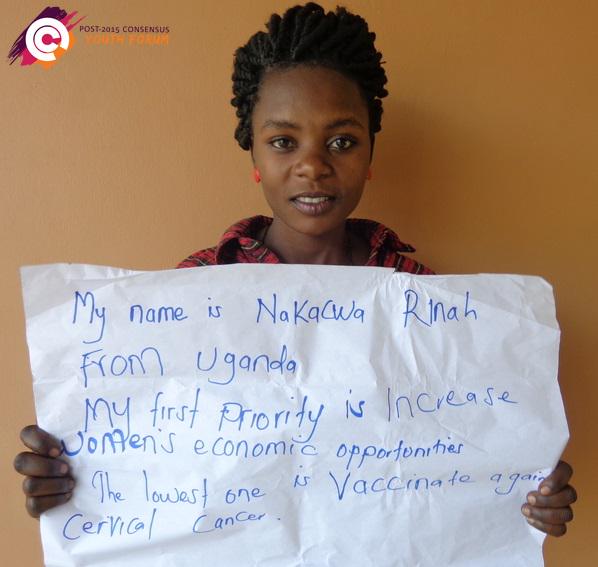 POST-2015 CONSENSUS
YOUTH FORUM
My name is Nakacwa Rinah
From Uganda
My first priority is Increase
women's economic opportunities
The lowest one is Vaccinate again
Cervical Cancer.